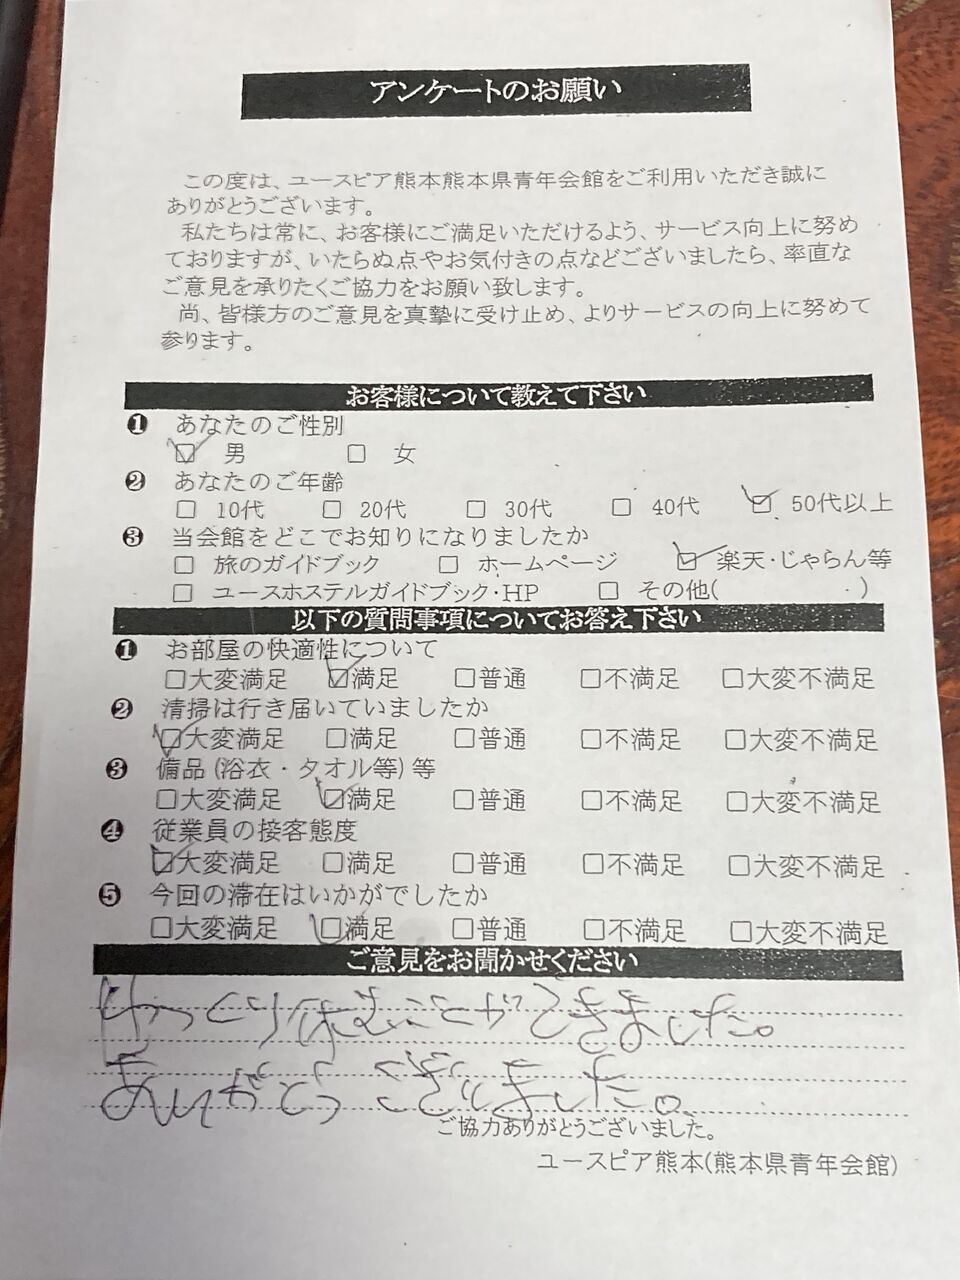 アンケートのお願い
この度は、ユースピア熊本熊本県青年会館をご利用いただき誠に
ありがとうございます。
私たちは常に、お客様にご満足いただけるよう、サービス向上に努め
ておりますが、いたらぬ点やお気付きの点などございましたら、率直な
ご意見を承りたくご協力をお願い致します。
尚、皆様方のご意見を真摯に受け止め、よりサービスの向上に努めて
参ります。
お客様について教えて下さい
❶ あなたのご性別
☑ 男 □ 女
❷ あなたのご年齢
□ 10代 □ 20代 □ 30代 □ 40代 ☑ 50代以上
❸ 当会館をどこでお知りになりましたか
□ 旅のガイドブック □ ホームページ ☑ 楽天・じゃらん等
□ ユースホステルガイドブック・HP □ その他( )
以下の質問事項についてお答え下さい
❶ お部屋の快適性について
□大変満足 ☑満足 □普通 □不満足 □大変不満足
❷ 清掃は行き届いていましたか
☑大変満足 □満足 □普通 □不満足 □大変不満足
❸ 備品(浴衣・タオル等)等
□大変満足 ☑満足 □普通 □不満足 □大変不満足
❹ 従業員の接客態度
☑大変満足 □満足 □普通 □不満足 □大変不満足
❺ 今回の滞在はいかがでしたか
□大変満足 ☑満足 □普通 □不満足 □大変不満足
ご意見をお聞かせください
ゆっくり休むことができました。
ありがとうございました。
ご協力ありがとうございました。
ユースピア熊本(熊本県青年会館)